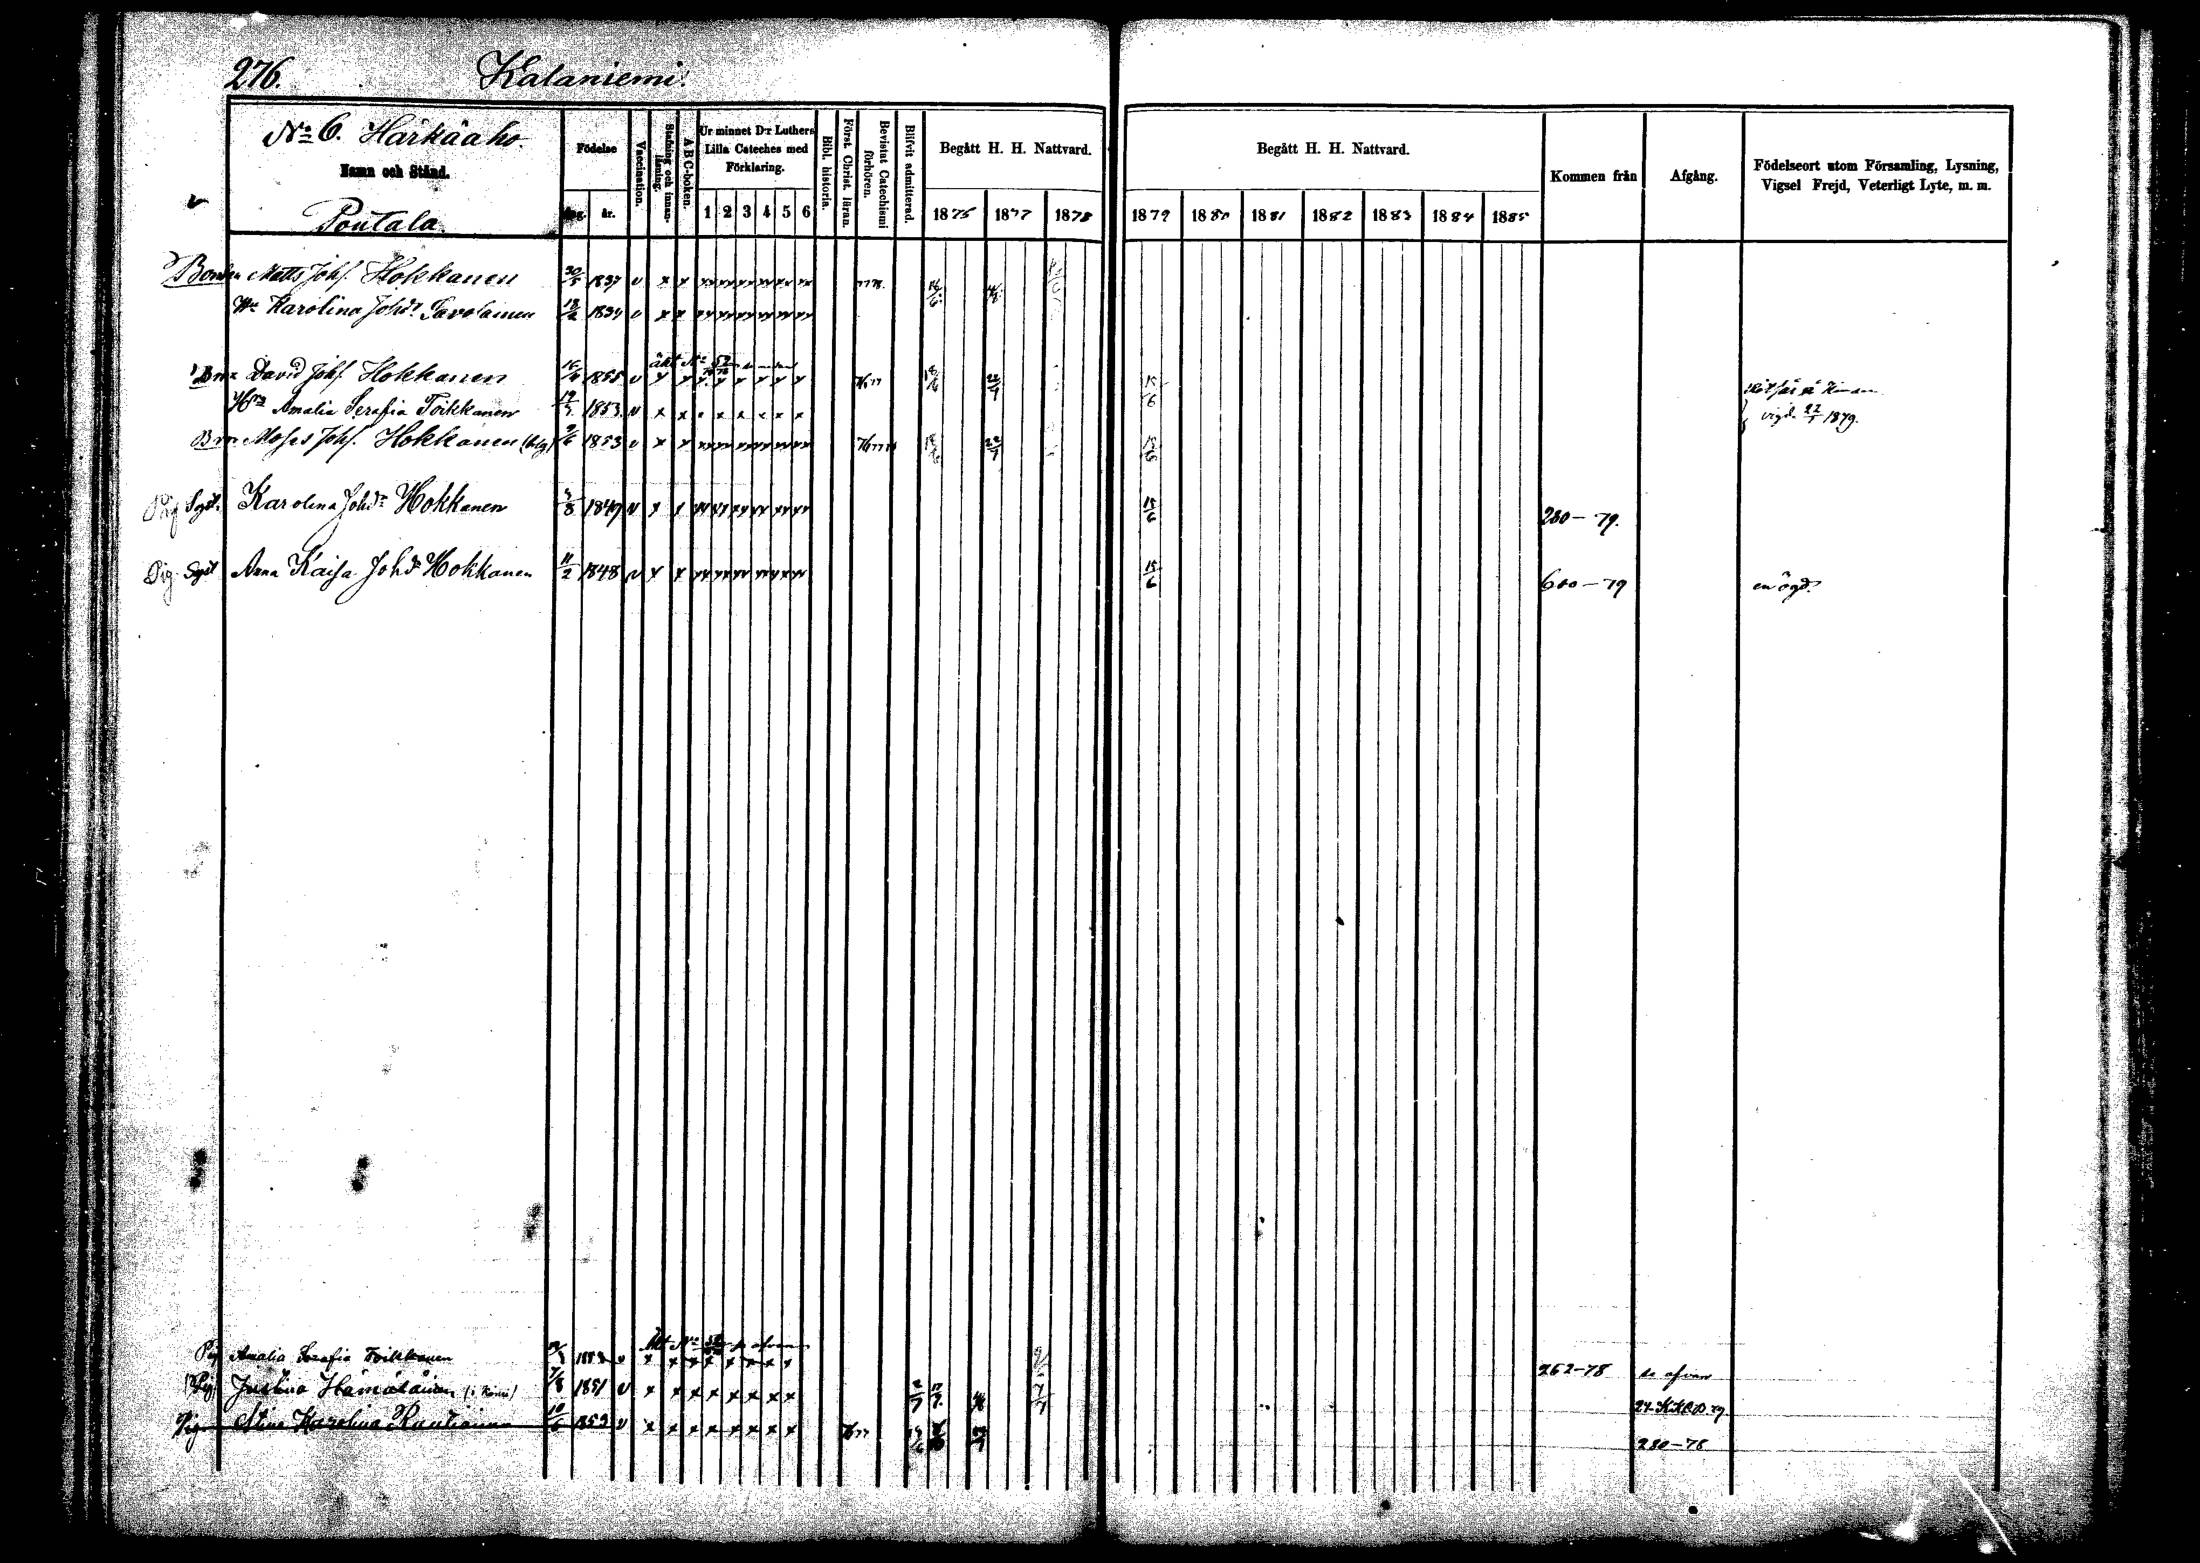 276. Kataniemi.
No 6. Härkäaho.
Namn och Stånd.
Poutala
Födelse
dag. år.
Vaccination.
Stafning och innanläsning.
A B C-boken.
Ur minnet D:r Luthers Lilla Cateches med Förklaring.
1 2 3 4 5 6
Bibl. historia.
Först. Christ. läran.
Bevistat Catechismi förhören.
Blifvit admitterad.
Begått H. H. Nattvard.
1876 1877 1878
Begått H. H. Nattvard.
1879 1880 1881 1882 1883 1884 1885
Kommen från
Afgång.
Födelseort utom Församling, Lysning, Vigsel Frejd, Veterligt Lyte, m. m.
Bonden Matts Johs. Hokkanen 30/5 1837 v x x 77 78.
Hu Karolina Johdr Savolainen 18/2 1834 v x x
Bror David Johs. Hokkanen 16/4 1855 v x x x x x x x x 22/7 15/6
Hru Amalia Serafia Toikkanen 19/3 1853 v x x x x x x x x vigd. 22/7 1879.
Bror Moses Johs. Hokkanen 9/6 1853 v x x 22/7 15/6
Pig Syst. Karolina Johdr Hokkanen 1849 v x x 15/6 280–79.
Pig Syst Anna Kaisa Johdr Hokkanen 11/2 1848 v x x 15/6 600–79 enögd.
Pig Amalia Serafia Toikkanen 19/3 1853 v x x x x x x x x 262–78 se ofvan
(Pig) Justina Hämäläinen 7/8 1851 v x x x x x x x x 2/7 7/7
Pig Stina Karolina Rautiainen 10/6 1853 v x x x x x x x x 280–78